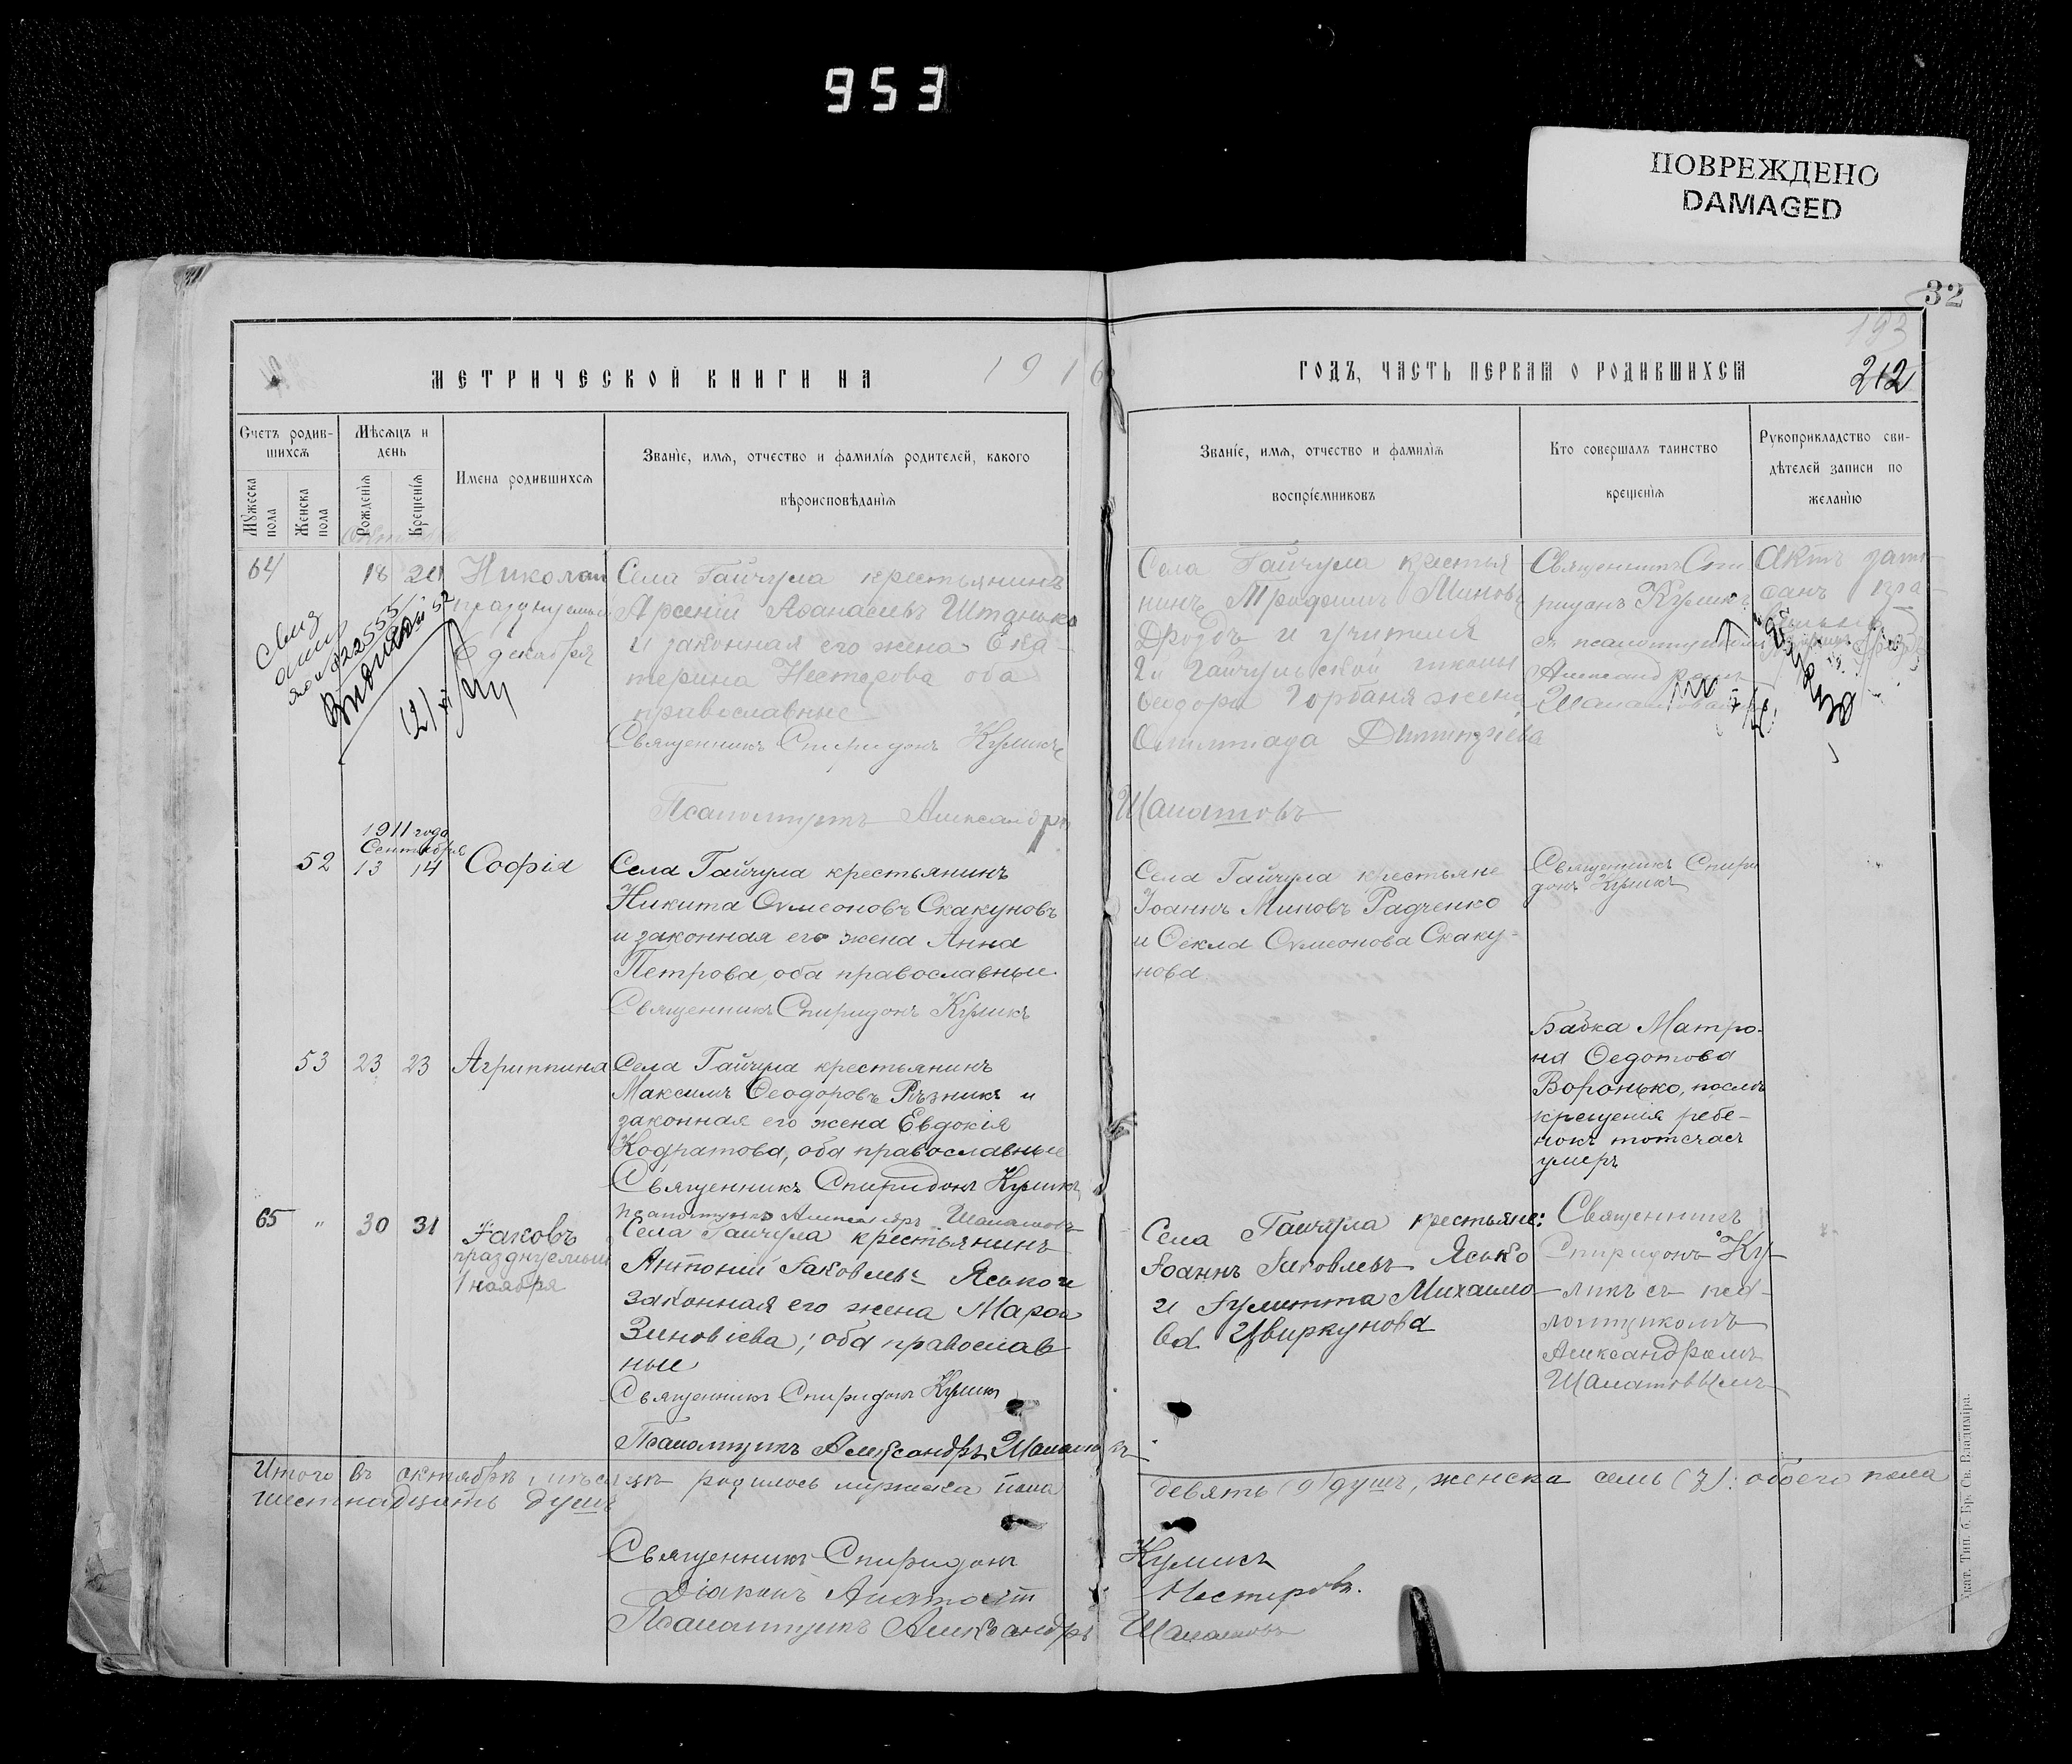 953
ПОВРЕЖДЕНО
DAMAGED
32
193
212
МЕТРИЧЕСКОЙ КНИГИ НА 1916
ГОДЪ, ЧАСТЬ ПЕРВАЯ О РОДИВШИХСЯ
Счетъ родив-
шихся
Мужеска пола
Женска пола
Мѣсяцъ и
день
Рожденія
Крещенія
Имена родившихся
Званіе, имя, отчество и фамилія родителей, какого
вѣроисповѣданія
Званіе, имя, отчество и фамилія
воспріемниковъ
Кто совершалъ таинство
крещенія
Рукоприкладство сви-
дѣтелей записи по
желанію
64
18 20
Николай
празднуемый
6 декабря
Села Гайчула крестьянинъ
Арсеній Аѳанасіевъ Штанько
и законная его жена Ека-
терина Нестерова оба
православные
Священникъ Спиридонъ Куликъ
Псаломщикъ Александръ Шалатовъ
Села Гайчула крестья
нинъ Трифонъ Миновъ
Дроздъ и учителя
2й Гайчульской школы
Ѳеодора Горбаня жена
Олимпіада Димитріева
Священникъ Спи
ридонъ Куликъ
съ псаломщикомъ
Александромъ
Актъ запи-
санъ
1911 года
Сентября
52
13 14
Софія
Села Гайчула крестьянинъ
Никита Сѵмеоновъ Скакуновъ
и законная его жена Анна
Петрова, оба православные
Священникъ Спиридонъ Куликъ
Села Гайчула крестьяне
Іоаннъ Миновъ Радченко
и Ѳекла Сѵмеонова Скаку-
нова
Священникъ Спири
донъ Куликъ
53
23 23
Агриппина
Села Гайчула крестьянинъ
Максимъ Ѳеодоровъ Рѣзникъ и
законная его жена Евдокія
Кодратова, оба православные
Священникъ Спиридонъ Куликъ
Псаломщикъ Александръ Шалатовъ
Бабка Матро-
на Ѳедотова
Воронько, послѣ
крещенія ребе-
нокъ тотчасъ
умеръ
65 " 30 31
Іаковъ
празднуемый
1 ноября
Села Гайчула крестьянинъ
Антоній Іаковлевъ Яско и
законная его жена Марѳа
Зиновіева; оба православ
ные
Священникъ Спиридонъ Куликъ
Псаломщикъ Александръ Шалатовъ
Села Гайчула крестьяне:
Іоаннъ Іаковлевъ Ясько
и Іулитта Михаило-
ва Цвиркунова
Священникъ
Спиридонъ Ку-
ликъ съ пса-
ломщикомъ
Александромъ
Шалатовымъ
Итого въ октябрѣ мѣсяцѣ родилось мужска пола девять (9) душъ, женска семь (7): обоего пола
шестнадцать душъ
Священникъ Спиридонъ Куликъ
Діаконъ Нестеровъ.
Псаломщикъ Александръ Шалатовъ